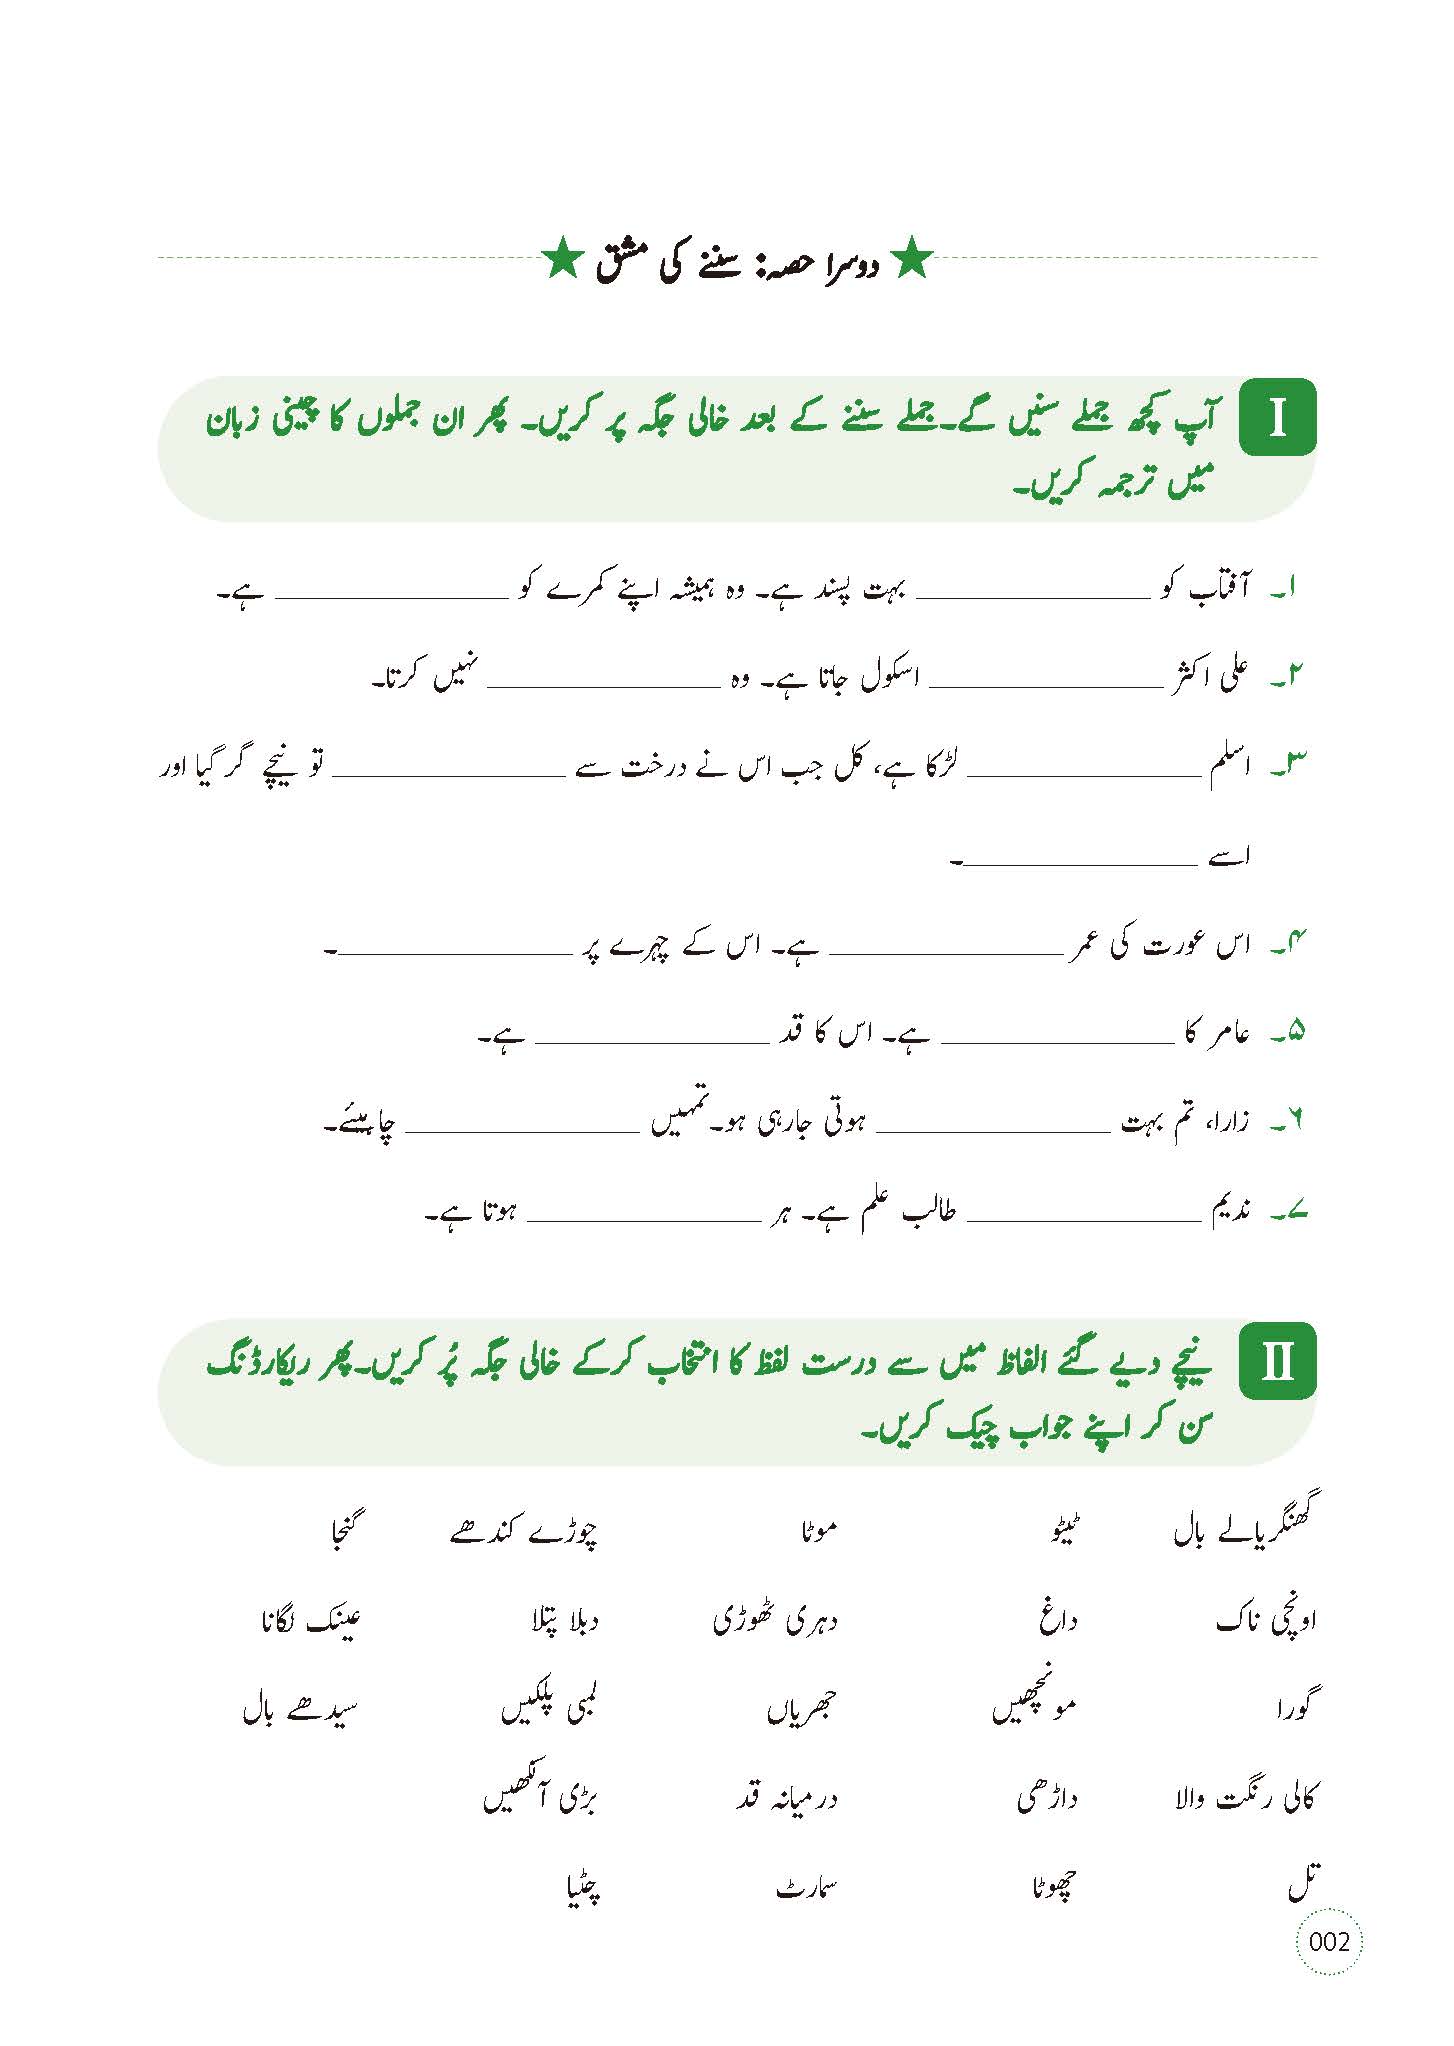 دوسرا حصہ: سننے کی مشق
I آپ کچھ جملے سنیں گے۔جملے سننے کے بعد خالی جگہ پر کریں۔ پھر ان جملوں کا چینی زبان
میں ترجمہ کریں۔
۱۔ آفتاب کو ____________ بہت پسند ہے۔ وہ ہمیشہ اپنے کمرے کو ____________ ہے۔
۲۔ علی اکثر ____________ اسکول جاتا ہے۔ وہ ____________ نہیں کرتا۔
۳۔ اسلم ____________ لڑکا ہے، کل جب اس نے درخت سے ____________ تو نیچے گر گیا اور
اسے ____________۔
۴۔ اس عورت کی عمر ____________ ہے۔ اس کے چہرے پر ____________۔
۵۔ عامر کا ____________ ہے۔ اس کا قد ____________ ہے۔
۶۔ زارا، تم بہت ____________ ہوتی جارہی ہو۔تمہیں ____________ چاہیئے۔
۷۔ ندیم ____________ طالب علم ہے۔ ہر ____________ ہوتا ہے۔
II نیچے دیے گئے الفاظ میں سے درست لفظ کا انتخاب کرکے خالی جگہ پُر کریں۔پھر ریکارڈنگ
سن کر اپنے جواب چیک کریں۔
گھنگریالے بال ٹیٹو موٹا چوڑے کندھے گنجا
اونچی ناک داغ دہری ٹھوڑی دبلا پتلا عینک لگانا
گورا مونچھیں جھریاں لمبی پلکیں سیدھے بال
کالی رنگت والا داڑھی درمیانہ قد بڑی آنکھیں
تل چھوٹا سمارٹ چٹیا
002